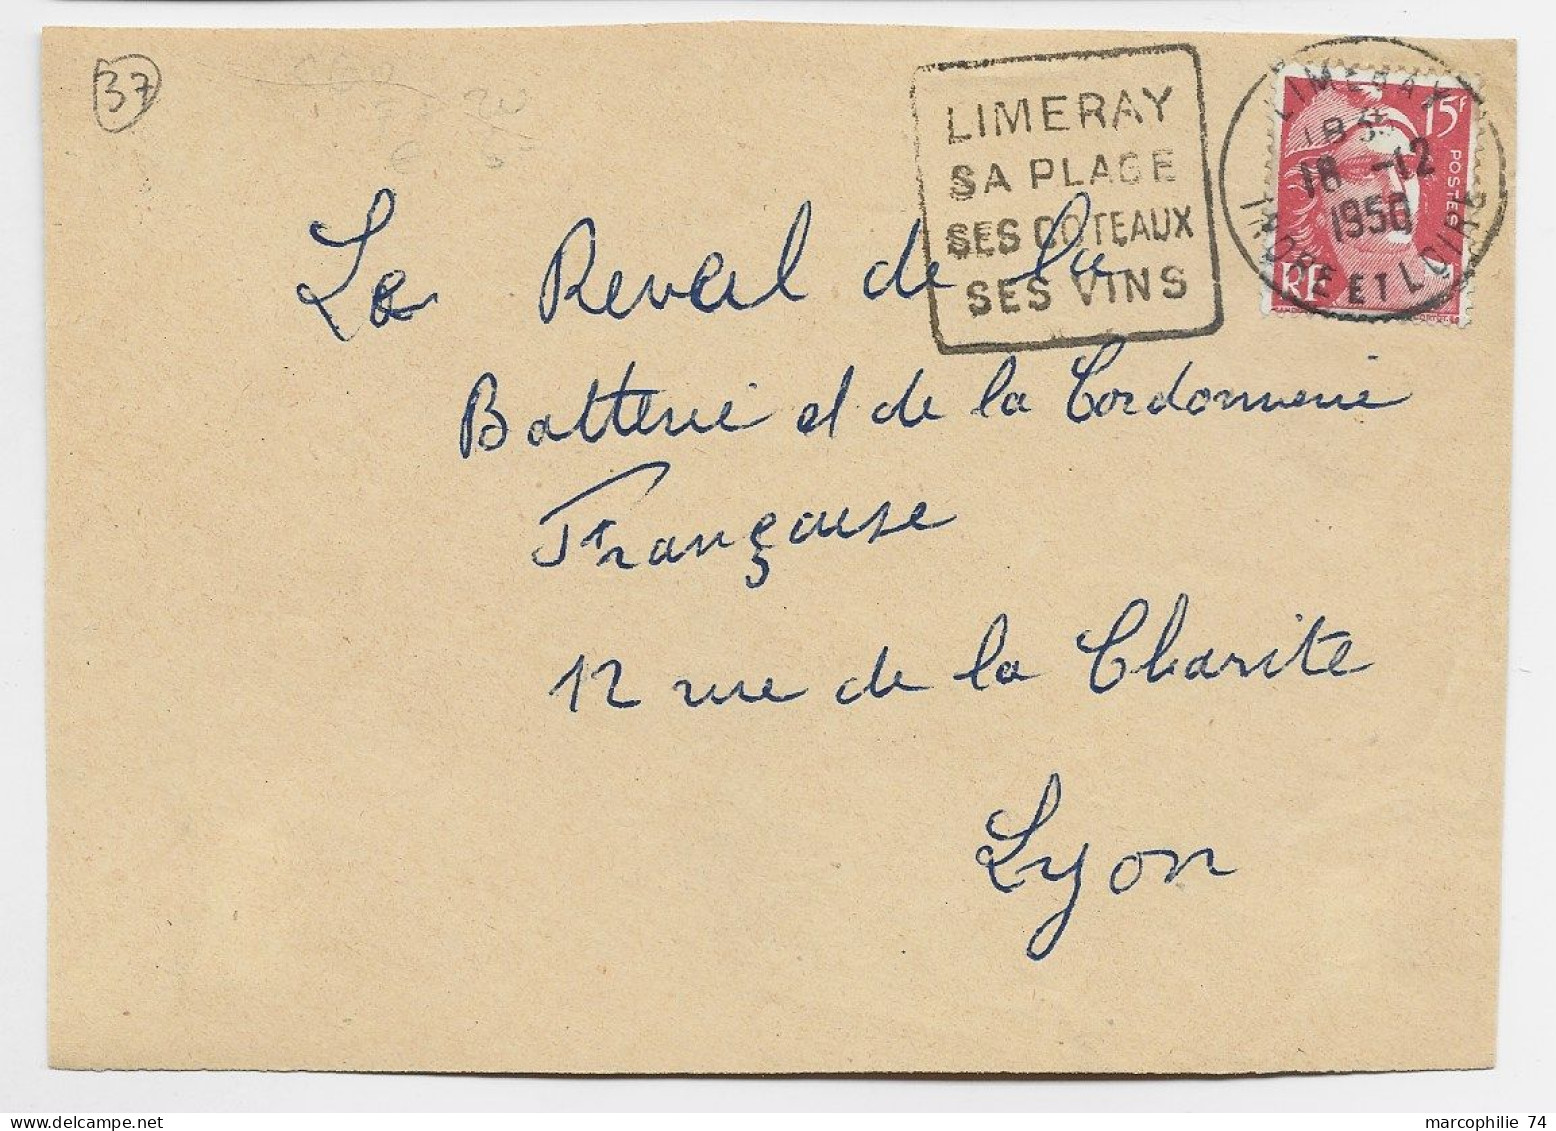 37
LIMERAY
SA PLAGE
SES COTEAUX
SES VINS
LIMERAY
18 35
18 -12
1950
INDRE ET LOIRE
15F
POSTES
RF
Le Reveil de la
Batterie et de la Cordonnerie
Française
12 rue de la Charite
Lyon
marcophilie 74